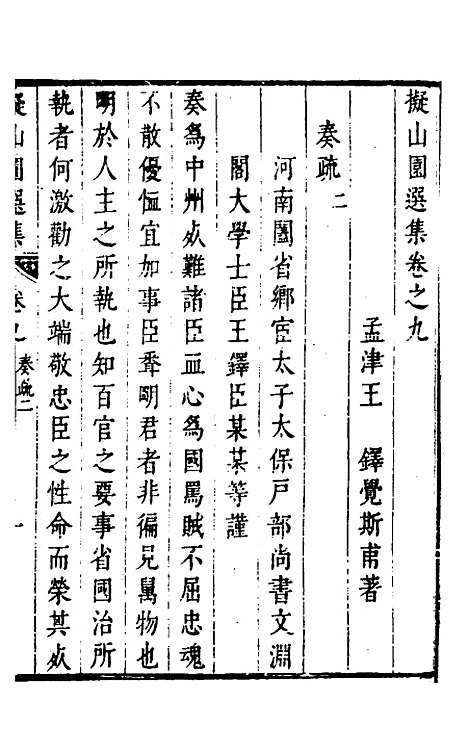 擬山園選集卷之九
孟津王　鐸覺斯甫著
奏疏二
河南闔省鄉宦太子太保戶部尚書文淵
閣大學士臣王鐸臣某某等謹
奏爲中州死難諸臣血心爲國罵賊不屈忠魂
不散優恤宜加事臣聞明君者非徧見萬物也
明於人主之所執也知百官之要事省國治所
執者何激勸之大端敬忠臣之性命而榮其死
擬山園選集
卷九
奏疏二
一